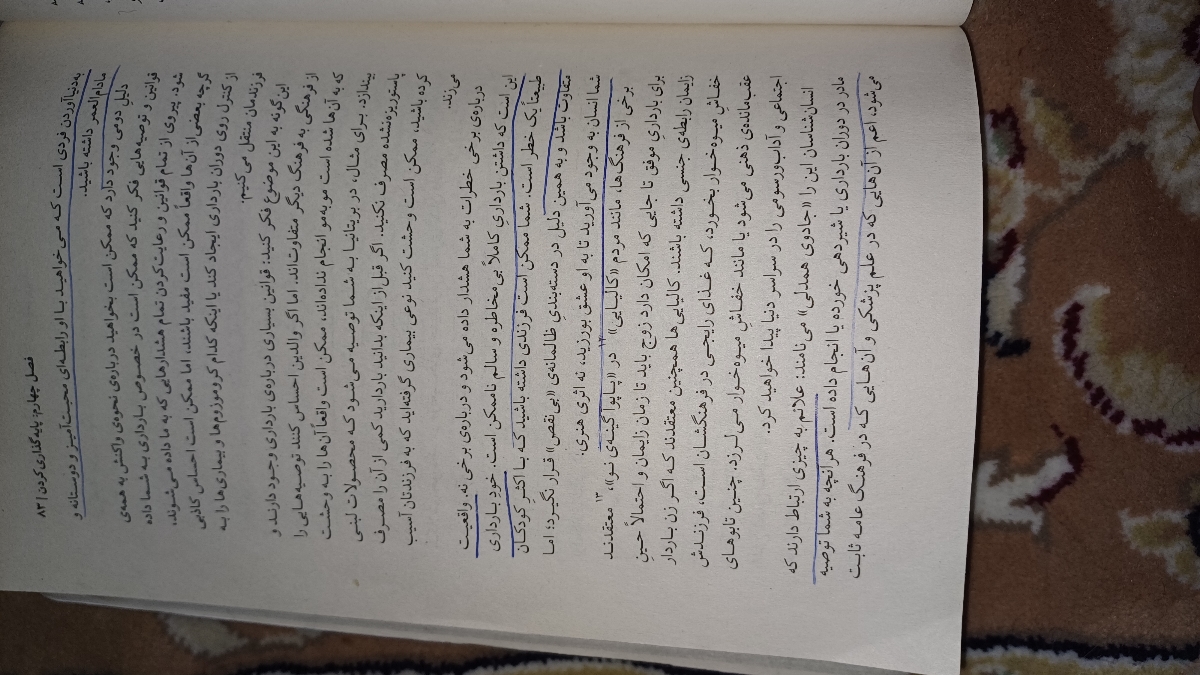 فصل چهارم: پایه‌گذاری کردن | ۸۳
به‌دنیاآوردن فردی است که می‌خواهید با او رابطه‌ای محبت‌آمیز و دوستانه و
مادام‌العمر داشته باشید.
دلیل دومی وجود دارد که ممکن است بخواهید درباره‌ی نحوه‌ی واکنش به همه‌ی
قوانین و توصیه‌هایی فکر کنید که ممکن است در خصوص بارداری به شما داده
شود. پیروی از تمام قوانین و رعایت‌کردن تمام هشدارهایی که به ما داده می‌شوند،
گرچه بعضی از آن‌ها واقعاً ممکن است مفید باشند، اما ممکن است احساس کاذبی
از کنترل روی دوران بارداری ایجاد کند یا اینکه کدام کروموزوم‌ها و بیماری‌ها را به
فرزندمان منتقل می‌کنیم.
این‌گونه به این موضوع فکر کنید: قوانین بسیاری درباره‌ی بارداری وجود دارند و
از فرهنگی به فرهنگ دیگر متفاوت‌اند. اما اگر والدین احساس کنند توصیه‌هایی را
که به آن‌ها شده است موبه‌مو انجام نداده‌اند، ممکن است واقعاً آن‌ها را به وحشت
بیندازد. برای مثال، در بریتانیا به شما توصیه می‌شود که محصولات لبنی
پاستوریزه‌نشده مصرف نکنید. اگر قبل از اینکه بدانید باردارید کمی از آن را مصرف
کرده باشید، ممکن است وحشت کنید نوعی بیماری گرفته‌اید که به فرزندتان آسیب
می‌زند.
درباره‌ی برخی خطرات به شما هشدار داده می‌شود و درباره‌ی برخی نه. واقعیت
این است که داشتن بارداریِ کاملاً بی‌مخاطره و سالم ناممکن است. خودِ بارداری
طبیعتاً یک خطر است. شما ممکن است فرزندی داشته باشید که با اکثر کودکان
متفاوت باشد و به همین دلیل در دسته‌بندیِ ظالمانه‌ی «بی‌نقص» قرار نگیرد؛ اما
شما انسان به وجود می‌آورید تا به او عشق بورزید، نه اثری هنری.
برخی از فرهنگ‌ها، مانند مردم «کالیایی»۱۲ در «پاپوا گینه‌ی نو»،۱۳ معتقدند
برای بارداریِ موفق تا جایی که امکان دارد زوج باید تا زمان زایمان و احتمالاً حینِ
زایمان رابطه‌ی جنسی داشته باشند. کالیایی‌ها همچنین معتقدند که اگر زن باردار
خفاشِ میوه‌خوار بخورد، که غذای رایجی در فرهنگشان است، فرزندش
عقب‌مانده‌ی ذهنی می‌شود یا مانند خفاشِ میوه‌خوار می‌لرزد. چنین تابوهای
اجتماعی و آداب‌ورسومی را در سراسر دنیا پیدا خواهید کرد.
انسان‌شناسان این را «جادوی همدلی» می‌نامند: علائم به چیزی ارتباط دارند که
مادر در دوران بارداری یا شیردهی خورده یا انجام داده است. هرآنچه به شما توصیه
می‌شود، اعم از آن‌هایی که در علم پزشکی و آن‌هایی که در فرهنگ عامه ثابت